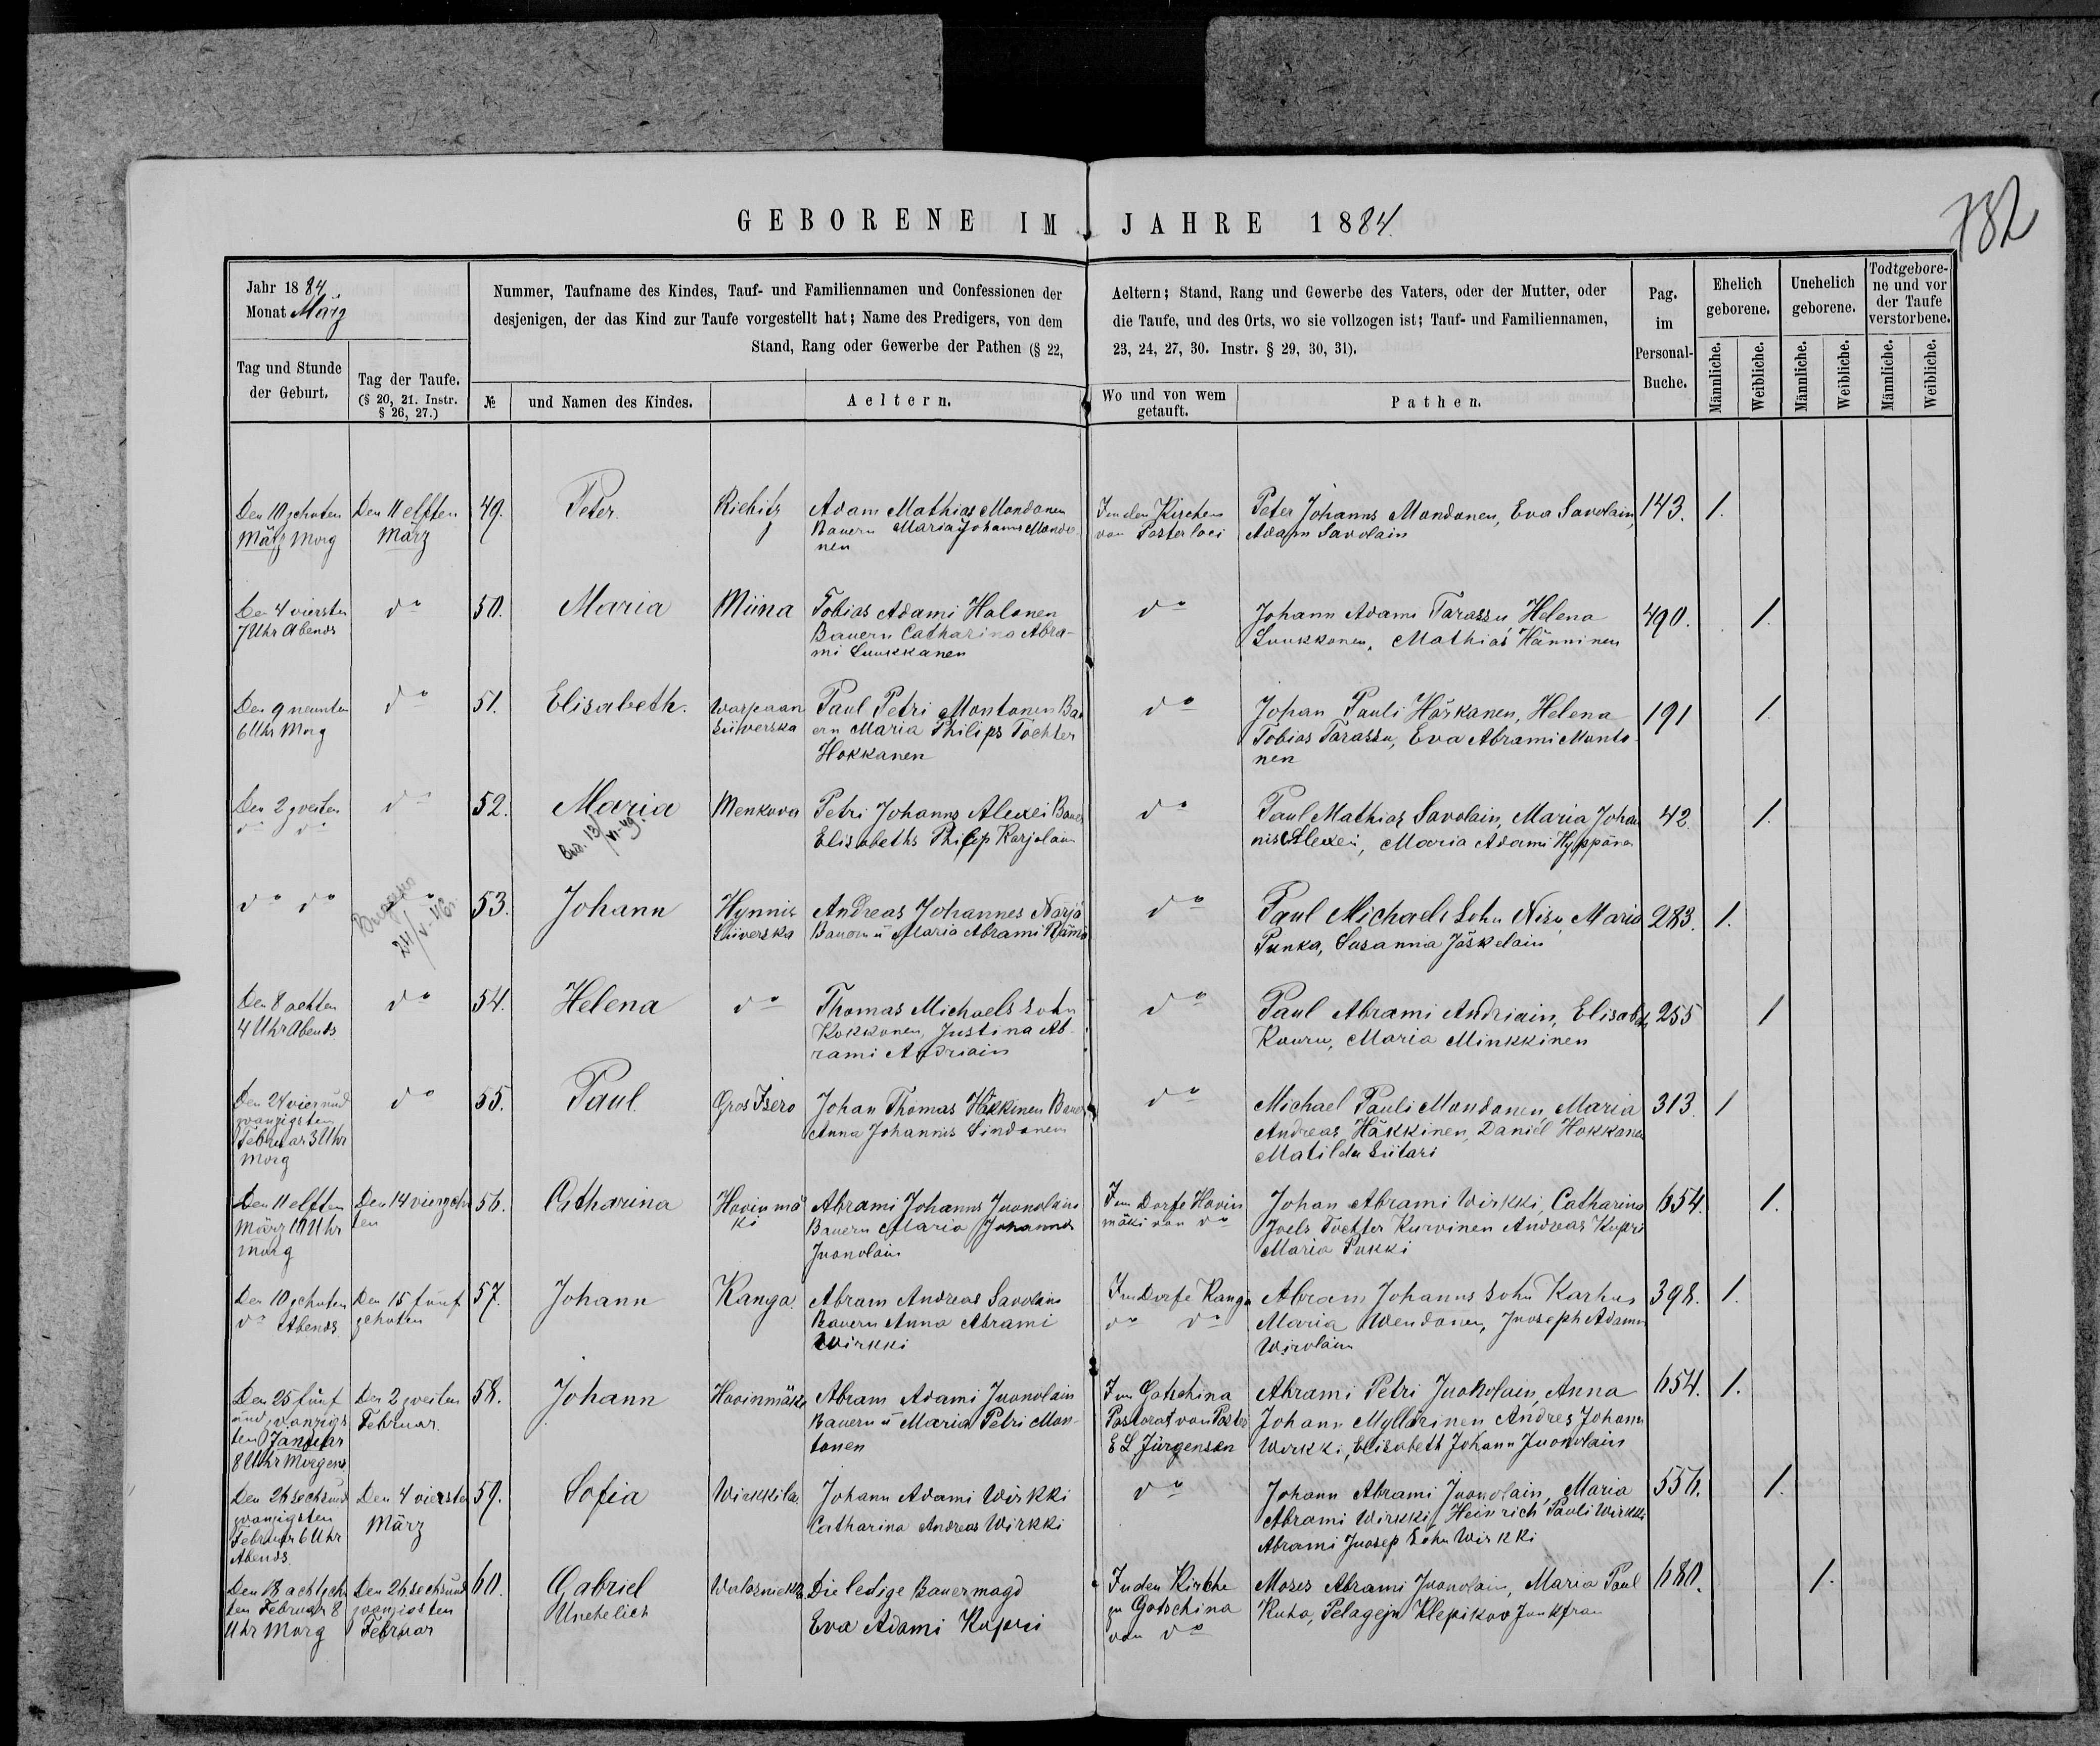 GEBORENE IM JAHRE 1884.
782
Jahr 1884
Monat März
Nummer, Taufname des Kindes, Tauf- und Familiennamen und Confessionen der
desjenigen, der das Kind zur Taufe vorgestellt hat; Name des Predigers, von dem
Stand, Rang oder Gewerbe der Pathen (§ 22,
Aeltern; Stand, Rang und Gewerbe des Vaters, oder der Mutter, oder
die Taufe, und des Orts, wo sie vollzogen ist; Tauf- und Familiennamen,
23, 24, 27, 30. Instr. § 29, 30, 31).
Pag.
im
Personal-
Buche.
Ehelich
geborene.
Unehelich
geborene.
Todtgebore-
ne und vor
der Taufe
verstorbene.
Tag und Stunde
der Geburt.
Tag der Taufe.
(§ 20, 21. Instr.
§ 26, 27.)
№
und Namen des Kindes.
Aeltern.
Wo und von wem
getauft.
Pathen.
Männliche.
Weibliche.
Männliche.
Weibliche.
Männliche.
Weibliche.
Den 10 zehnten
März Morg
Den 11 elften
März
49.
Peter
Adam Mathias Mondonen
Bauern Maria Johanns Mondo
nen
In den Kirchen
von Pastor loci
Peter Johanns Mondonen, Eva Savolain,
Adam Savolain
143.
1.
Den 4 viersten
7 Uhr Abends
do
50.
Maria
Miina
Tobias Adami Halonen
Bauern Catharina Abra-
mi Luukkanen
do
Johann Adami Tarassu Helena
Luukkonen, Mathias Hänninen
490.
1.
Den 9 neunten
6 Uhr Morg
do
51.
Elisabeth.
Warpaan
Siiwerska
Paul Petri Montonen Bau
ern Maria Philips Tochter
Hokkanen
do
Johan Pauli Härkanen, Helena
Tobias Tarassu, Eva Abrami Monto
nen
191
1.
Den 2 zweiten
do do
do
52.
Maria
Menkova
Petri Johanns Alexei Bauer
Elisabeths Philip Karjolain
do
Paul Mathias Savolain, Maria Johan
nis Alexei, Maria Adami Hyppönen
42.
1.
do do
53.
Johann
Hynnis
Siiverska
Andreas Johannes Närjä
Bauern u Maria Abrami Rämö
do
Paul Michaels Sohn Aisu, Maria
Punka, Susanna Jäskelain
283.
1.
Den 8 achten
4 Uhr Abends
do
54.
Helena
do
Thomas Michaels Sohn
Kokkonen, Justina Ab
rami Andriain
do
Paul Abrami Andriain, Elisabeth
Kauru, Maria Minkkinen
255
1
Den 24 vierund
zwanzigsten
Februar 3 Uhr
Morg
do
55.
Paul
Gros Isero
Johan Thomas Häkkinen Bauer
Anna Johannis Sindonen
do
Michael Pauli Mondonen, Maria
Andreas Häkkinen, Daniel Hokkanen
Matilda Siitari
313.
1
Den 11 elften
März 10 Uhr
morg
Den 14 vierzehn
ten
56.
Catharina
Hovinmä
ki
Abrami Johanns Juonolain
Bauern Maria Johanns
Juonolain
Im Dorfe Hovin
mäki von do
Johan Abrami Wirkki, Catharina
Joels Tochter Kurvinen Andreas Kupri
Maria Pukki
654.
1.
Den 10 zehnten
do Abends
Den 15 fünf
zehnten
57.
Johann
Kanga
Abram Andreas Savolain
Bauern Anna Abrami
Wirkki
Im Dorfe Kanga
do do
Abram Johanns Sohn Karhu
Maria Wendonen, Juoseph Adami
Wirolain
398.
1.
Den 25 fünf
und zwanzigs
ten Januar
8 Uhr Morgens
Den 2 zweiten
Februar
58.
Johann
Hovinmäki
Abram Adami Juonolain
Bauern u Maria Petri Mon-
tonen
Im Gatschina
Pastorat von Pastor
E L Jürgensen
Abrami Petri Juonolain, Anna
Johann Myllärinen Andres Johann
Wirkki, Elisabeth Johann Juonolain
654.
1.
Den 26 sechsund
zwanzigsten
Februar 6 Uhr
Abends
Den 4 viersten
März
59.
Sofia
Wirkkila
Johann Adami Wirkki
Catharina Andreas Wirkki
do
Johann Abrami Juonolain, Maria
Abrami Wirkki, Heinrich Pauli Wirkki
Abrami Juosep Sohn Wirkki
556.
1.
Den 18 achtzehn
ten Februar 8
Uhr Morg
Den 26 sechsund
zwanzigsten
Februar
60.
Gabriel
Unehelich
Die ledige Bauermagd
Eva Adami Kupri
In den Kirche
zu Gatschina
von do
Moses Abrami Juonolain, Maria Paul
Ruho, Pelageja Klepikov Junkfrau
680.
1.